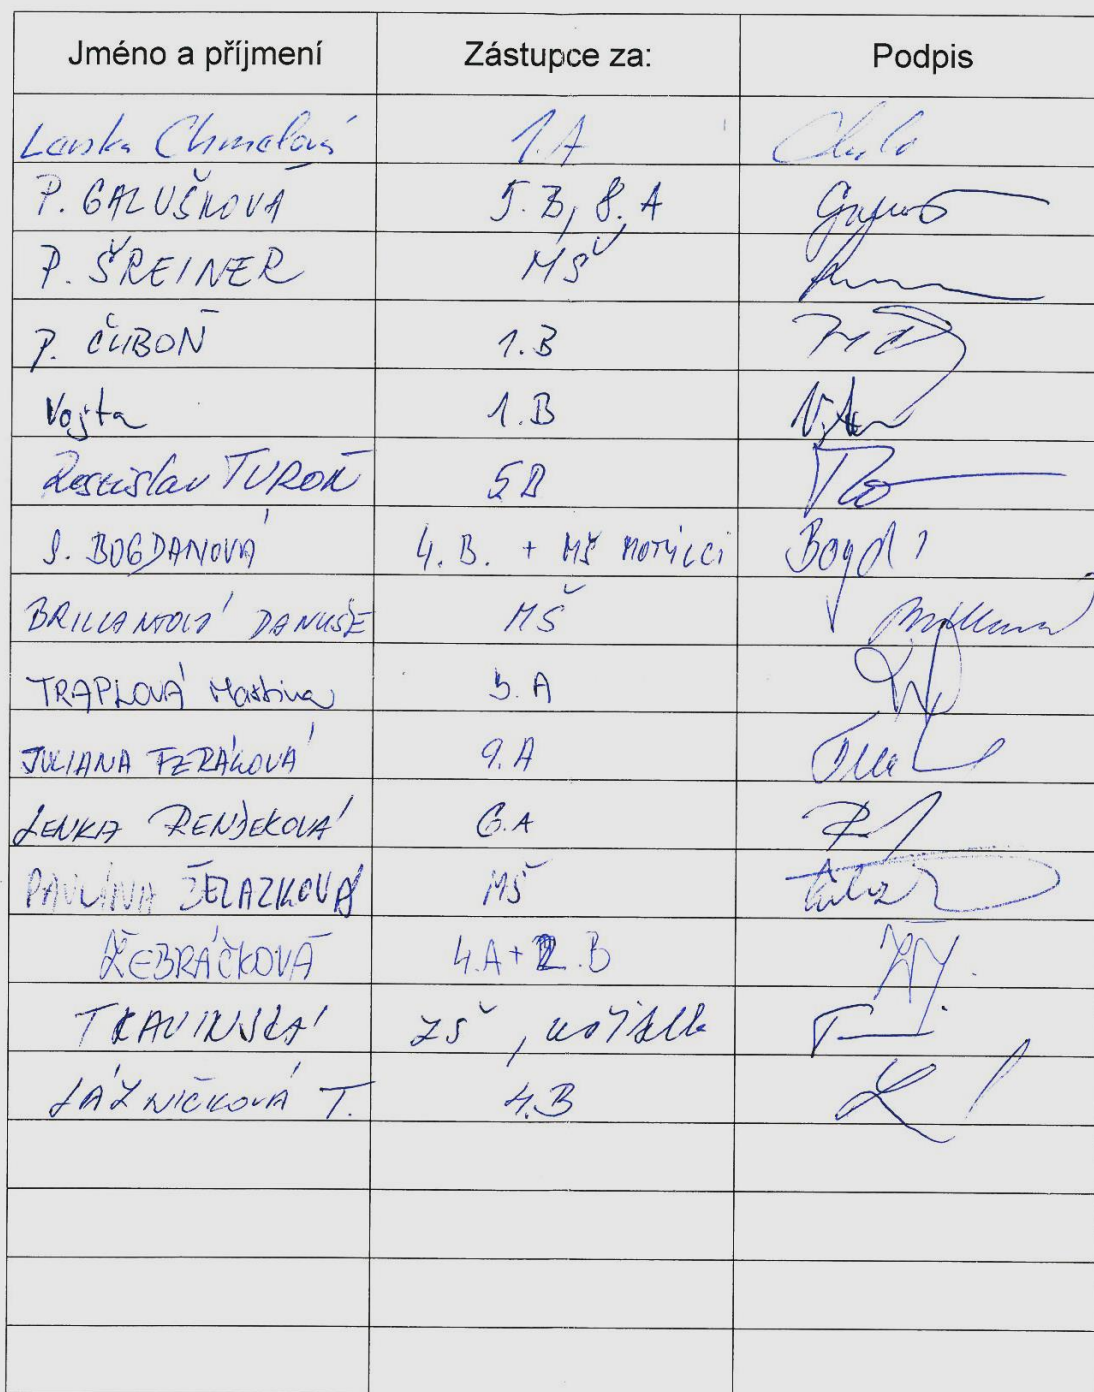 Jméno a příjmení Zástupce za: Podpis
Lenka Chmelová 1.A
P. GALUŠKOVÁ 5.B, 8.A
P. ŠREINER MŠ
P. ČUBOŇ 1.B
Vojta 1.B
Rostislav TUROŇ 5B
S. BOGDANOVÁ 4.B. + MŠ MOTÝLCI Bogd
BRILLANTOVÁ DANUŠE MŠ
TRAPLOVÁ Martina 3.A
JULIANA FERÁKOVÁ 9.A
LENKA RENDEKOVÁ 6.A
PAVLÍNA ŽELAZKOVÁ MŠ
ŽEBRÁČKOVÁ 4.A+2.B
TRAVINSKÁ ZŠ,
LÁZNIČKOVÁ T. 4.B